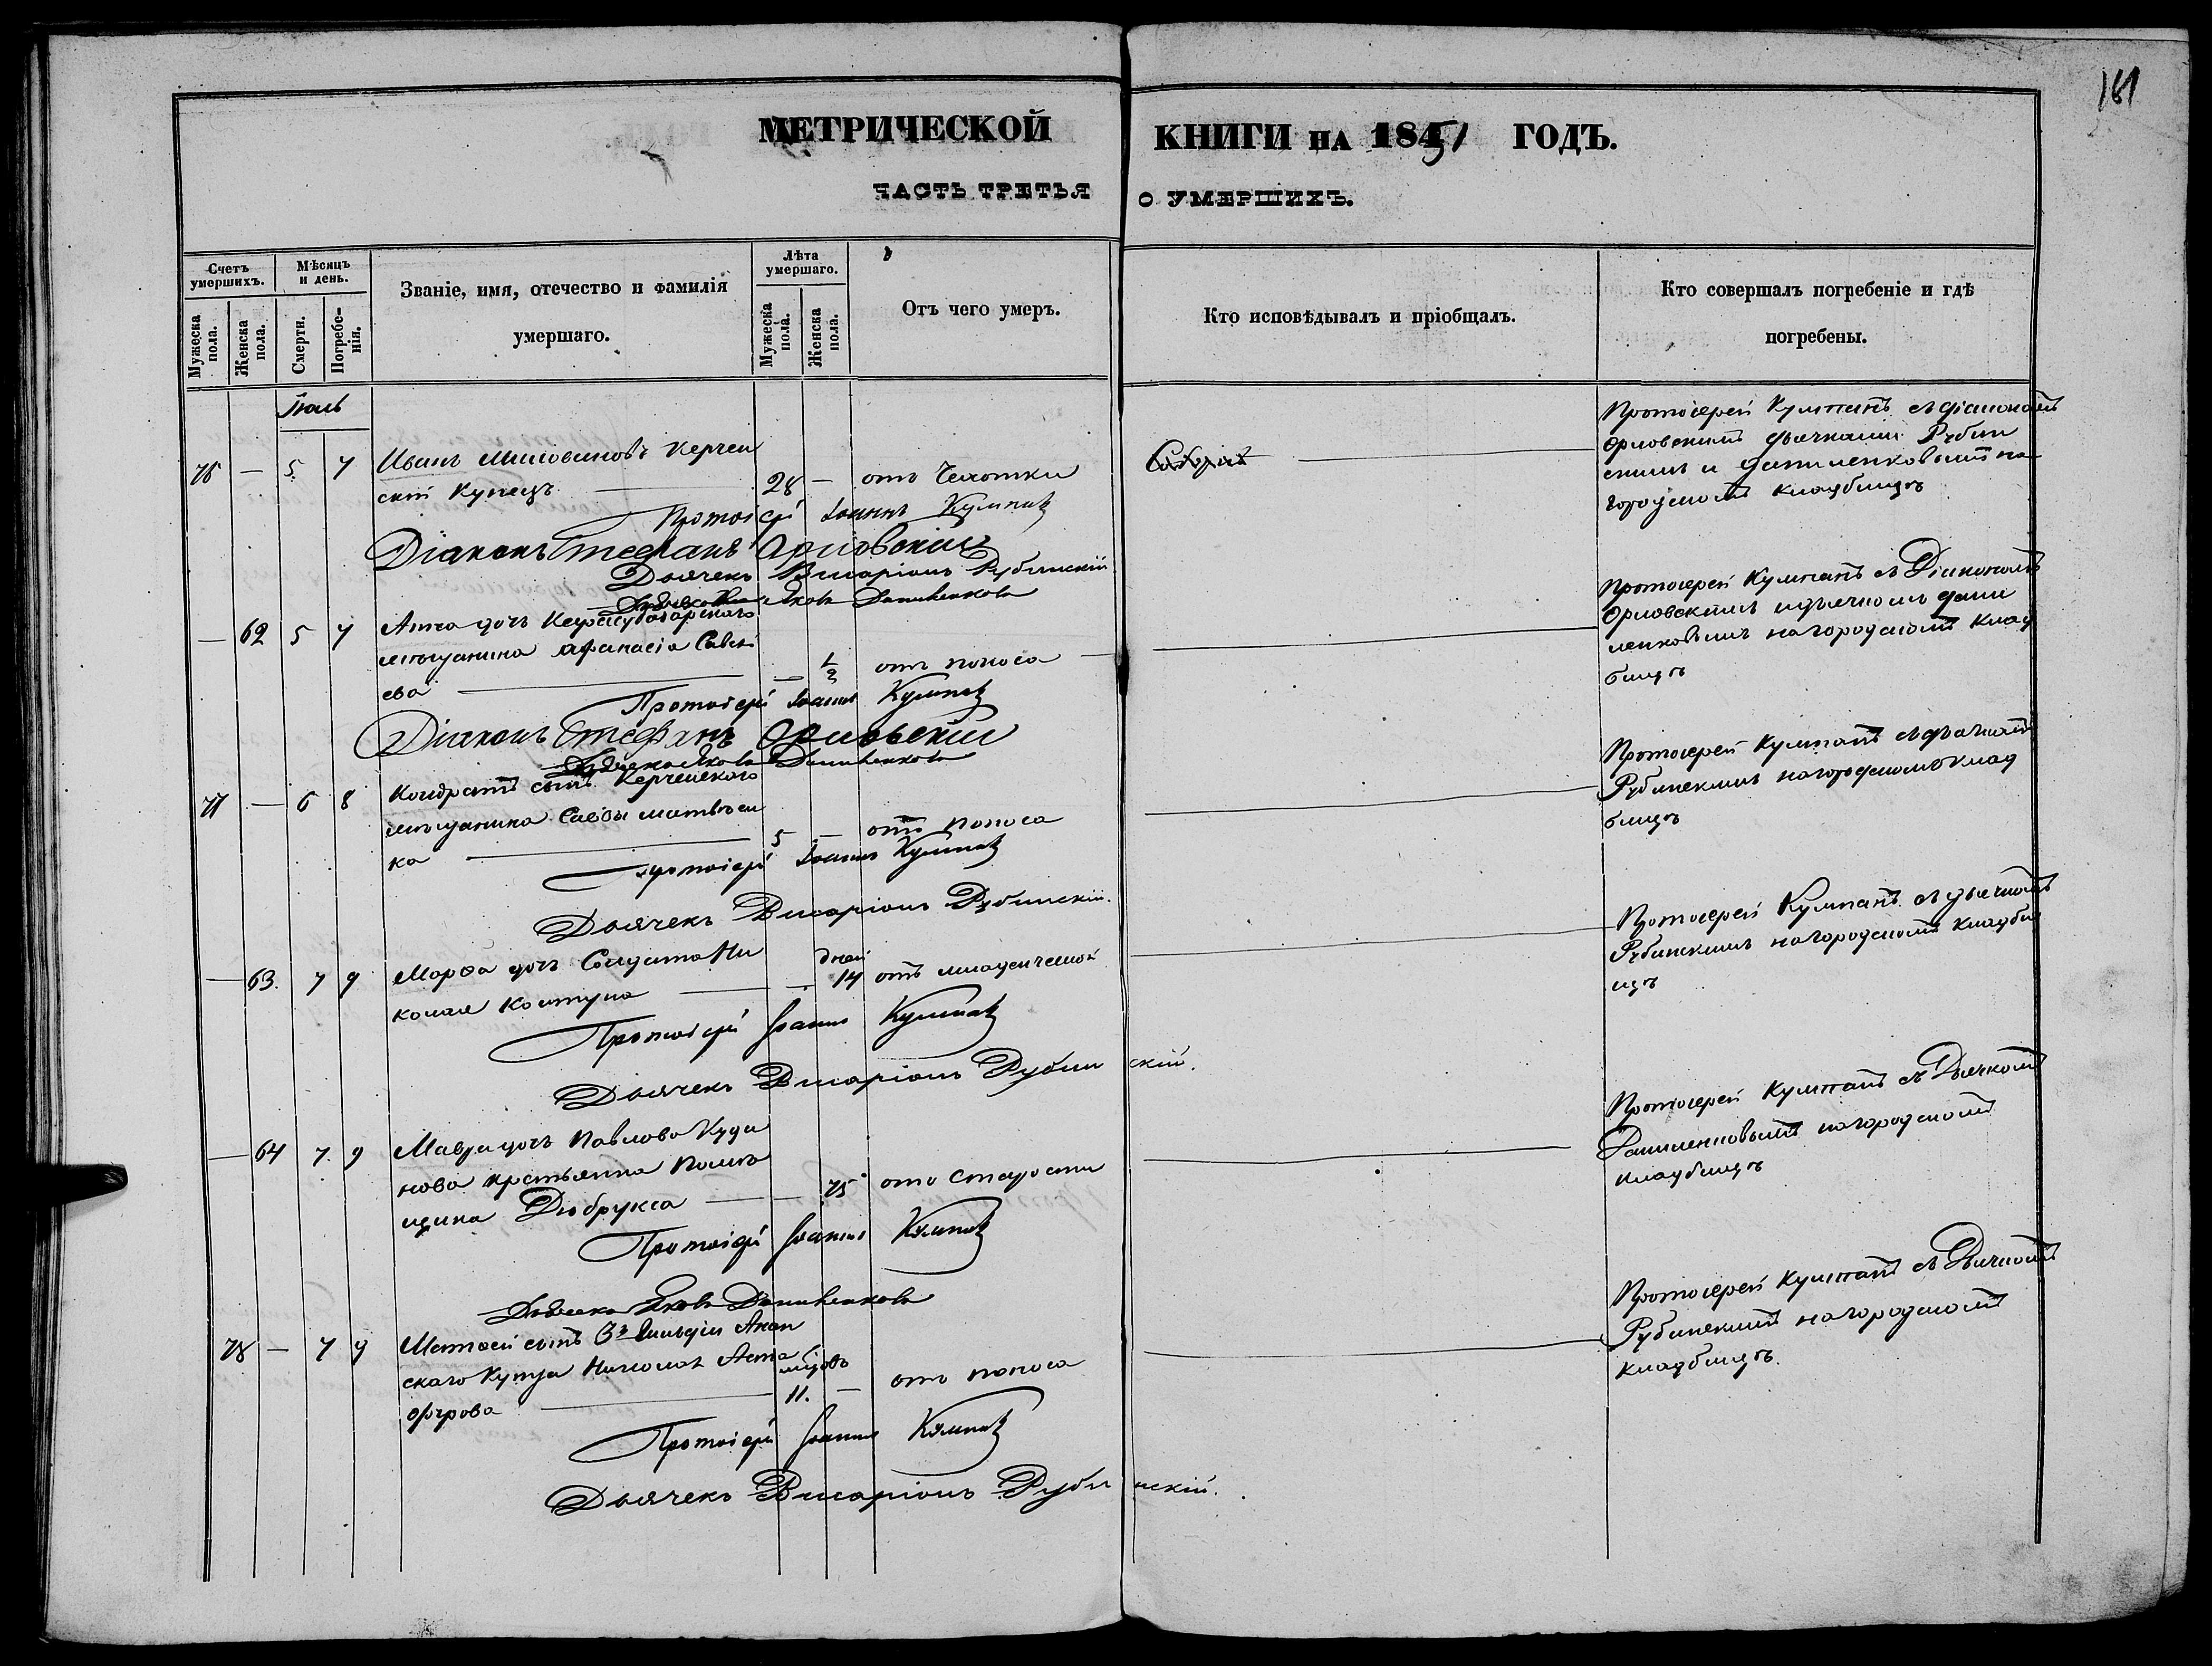 181
МЕТРИЧЕСКОЙ КНИГИ НА 1851 ГОДЪ.
ЧАСТЬ ТРЕТЬЯ О УМЕРШИХЪ.
Счетъ умершихъ.
Мужеска пола.
Женска пола.
Мѣсяцъ и день.
Смерти.
Погребенія.
Званіе, имя, отечество и фамилія
умершаго.
Лѣта умершаго.
Мужеска пола.
Женска пола.
Отъ чего умеръ.
Кто исповѣдывалъ и пріобщалъ.
Кто совершалъ погребеніе и гдѣ
погребены.
Іюль
— 5 7 Иванъ Керчен
скій Купецъ 28 — отъ Чахотки
Протоіерей Кумпанъ съ діакономъ
Орловскимъ дьячками Рубин
скимъ и Даниленковымъ на
городскомъ кладбищѣ
Протоіерей Іоаннъ Кумпанъ
Діаконъ Стефанъ Орловскій
Дьячекъ Висаріонъ Рубинскій
Дьячекъ Яковъ Даниленковъ
— 62 5 7 Анна дочь
мѣщанина Афанасія Савель
ева — 1/2 отъ поноса
Протоіерей Кумпанъ съ Діакономъ
Орловскимъ и дьячкомъ Дани
ленковымъ на городскомъ клад
бищѣ
Протоіерей Іоаннъ Кумпанъ
Діаконъ Стефанъ Орловскій
Дьячекъ Яковъ Даниленковъ
77 — 6 8 Кондратъ сынъ Керченскаго
мѣщанина Савы Матвѣен
ка 5 — отъ поноса
Протоіерей Кумпанъ съ дьячкомъ
Рубинскимъ на городскомъ клад
бищѣ
Протоіерей Іоаннъ Кумпанъ
Дьячекъ Висаріонъ Рубинскій.
— 63. 7 9 Марфа дочь Солдата Ни
колая Колтуна — дней 14 отъ младенческой
Протоіерей Кумпанъ съ дьячкомъ
Рубинскимъ на городскомъ кладби
щѣ
Протоіерей Іоаннъ Кумпанъ
Дьячекъ Висаріонъ Рубинскій.
— 64 7. 9 Мавра дочь Павлова
нова крестьянка помѣ
щика Дюбрукса — 75 отъ старости
Протоіерей Кумпанъ съ Дьячкомъ
Даниленковымъ на городскомъ
кладбищѣ
Протоіерей Іоаннъ Кумпанъ
Дьячекъ Яковъ Даниленковъ
78 — 7 9 сынъ 3й Гильдіи
скаго Купца Николая
мѣсяцовъ 11. — отъ поноса
Протоіерей Кумпанъ съ Дьячкомъ
Рубинскимъ на городскомъ
кладбищѣ.
Протоіерей Іоаннъ Кумпанъ
Дьячекъ Висаріонъ Рубинскій.